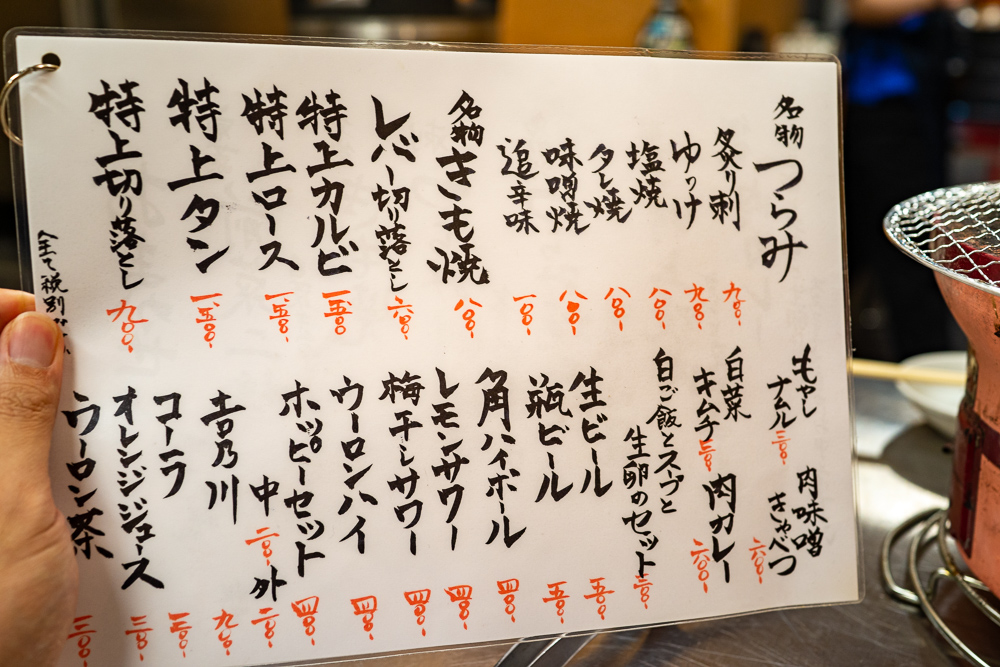 名物 つらみ
炙り刺 九〇〇-
ゆっけ 九〇〇-
塩焼 八〇〇-
タレ焼 八〇〇-
味噌焼 八〇〇-
追辛味 一〇〇-
名物 きも焼 八〇〇-
レバー切り落とし 六〇〇-
特上カルビ 一五〇〇-
特上ロース 一五〇〇-
特上タン 一五〇〇-
特上切り落とし 九〇〇-
全て税別
もやし
ナムル 三〇〇-
肉味噌
きゃべつ 六〇〇-
白菜
キムチ 三〇〇-
肉カレー 六〇〇-
白ご飯とスープと
生卵のセット 三〇〇-
生ビール 五〇〇-
瓶ビール 五〇〇-
角ハイボール 四〇〇-
レモンサワー 四〇〇-
梅干しサワー 四〇〇-
ウーロンハイ 四〇〇-
ホッピーセット 四〇〇-
中 二〇〇- 外 二〇〇-
吉乃川 九〇〇-
コーラ 三〇〇-
オレンジジュース 三〇〇-
ウーロン茶 三〇〇-